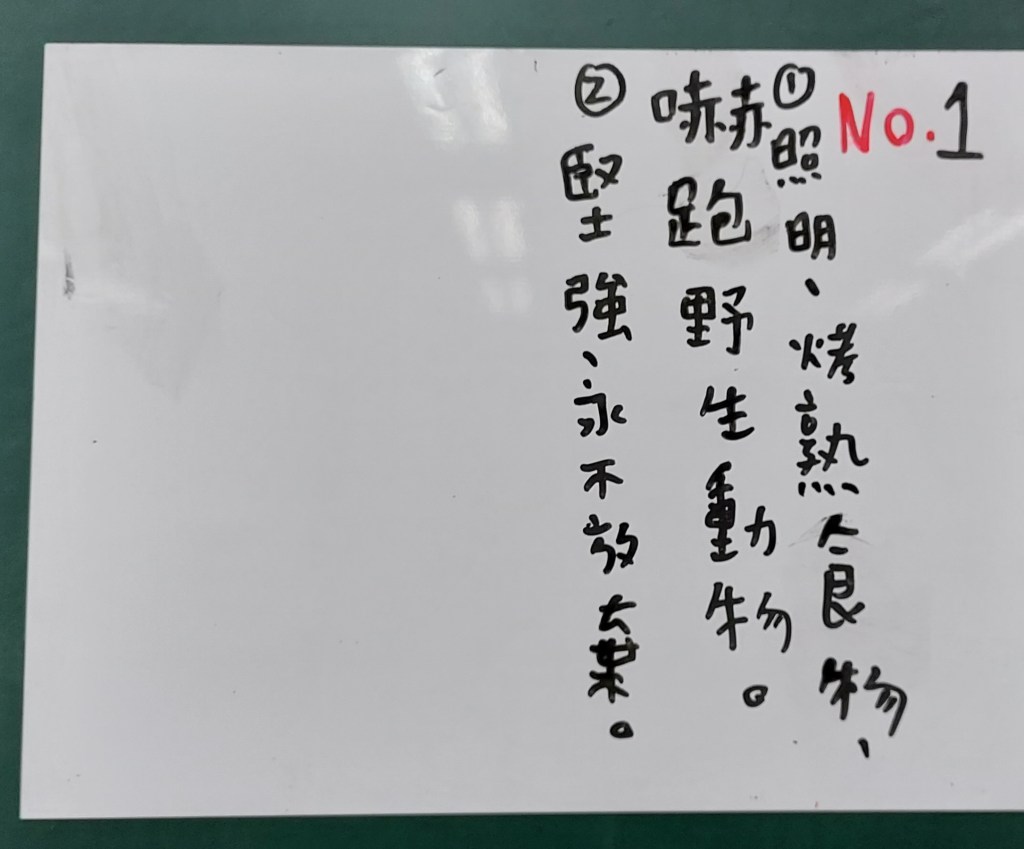 No.1
①照明、烤熟食物、
嚇跑野生動物。
②堅強、永不放棄。